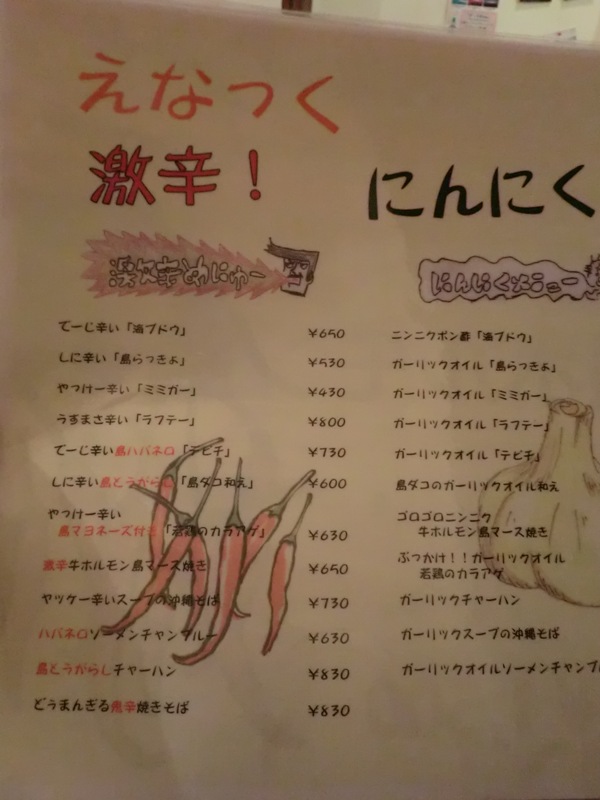 えなっく
激辛！
にんにく
激辛めにゅー
にんにくメニュー
てーじ辛い「海ブドウ」 ¥650
しに辛い「島らっきょ」 ¥530
やっけー辛い「ミミガー」 ¥430
うすまさ辛い「ラフテー」 ¥800
でーじ辛い島ハバネロ「テビチ」 ¥730
しに辛い島とうがらし「島ダコ和え」 ¥600
やっけー辛い
島マヨネーズ付き「若鶏のカラアゲ」 ¥630
激辛牛ホルモン島マース焼き ¥650
ヤッケー辛いスープの沖縄そば ¥730
ハバネロソーメンチャンプルー ¥630
島とうがらしチャーハン ¥830
どぅまんぎる鬼辛焼きそば ¥830
ニンニクポン酢「海ブドウ」
ガーリックオイル「島らっきょ」
ガーリックオイル「ミミガー」
ガーリックオイル「ラフテー」
ガーリックオイル「テビチ」
島ダコのガーリックオイル和え
ゴロゴロニンニク
牛ホルモン島マース焼き
ぶっかけ！！ガーリックオイル
若鶏のカラアゲ
ガーリックチャーハン
ガーリックスープの沖縄そば
ガーリックオイルソーメンチャンプル